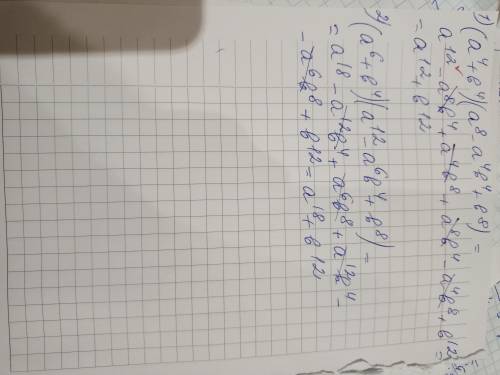 1) (a⁴+b⁴)(a⁸-a⁴b⁴+b⁸) =
a¹²-a⁸b⁴+a⁴b⁸+a⁸b⁴-a⁴b⁸+b¹²=
= a¹²+b¹²
2) (a⁶+b⁴)(a¹²-a⁶b⁴+b⁸) =
= a¹⁸-a¹²b⁴+a⁶b⁸+a¹²b⁴-
-a⁶b⁸+b¹²=a¹⁸+b¹²